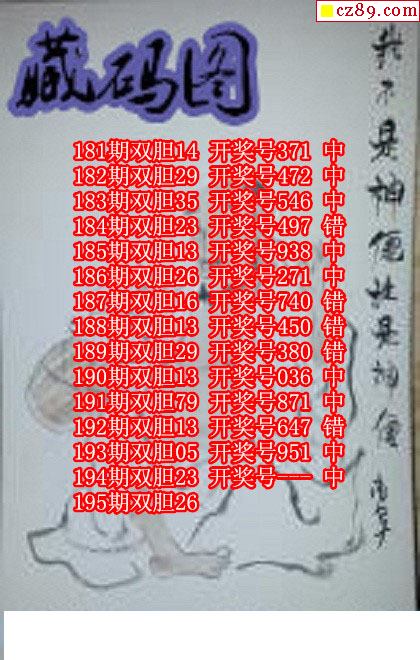 cz89.com
藏码图
181期双胆14 开奖号371 中
182期双胆29 开奖号472 中
183期双胆35 开奖号546 中
184期双胆23 开奖号497 错
185期双胆13 开奖号938 中
186期双胆26 开奖号271 中
187期双胆16 开奖号740 错
188期双胆13 开奖号450 错
189期双胆29 开奖号380 错
190期双胆13 开奖号036 中
191期双胆79 开奖号871 中
192期双胆13 开奖号647 错
193期双胆05 开奖号951 中
194期双胆23 开奖号--- 中
195期双胆26
我不是神仙胜是神仙